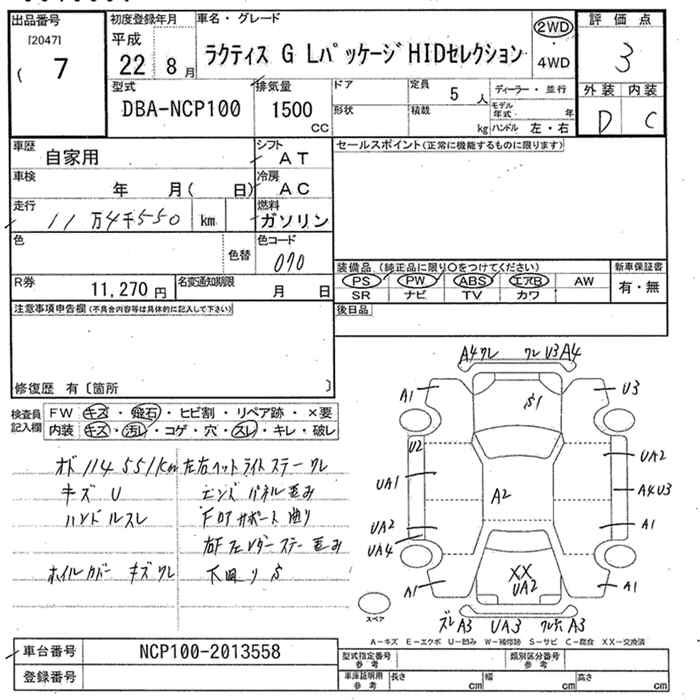 出品番号
[2047]
( 7
初度登録年月
平成
22 8 月
車名・グレード
ラクティス G LパッケージHIDセレクション
2WD
・
4WD
評価点
3
外装 内装
D C
型式
DBA-NCP100
排気量
1500
CC
ドア
形状
定員
5 人
積載
kg
ディーラー・並行
モデル
年式 年
ハンドル 左・右
車歴
自家用
シフト
AT
セールスポイント(正常に機能するものに限ります)
車検
年 月( 日)
冷房
AC
走行
11 万4千550 km
燃料
ガソリン
色
色替
色コード
070
装備品 (純正品に限り○をつけてください)
PS PW ABS エアB AW
SR ナビ TV カワ
新車保証書
有・無
R券
11,270 円
名変通知期限
月 日
後日品
注意事項申告欄(不具合内容等は具体的に記入して下さい)
修復歴 有〔箇所 〕
検査員
記入欄
FW キズ・飛石・ヒビ割・リペア跡・×要
内装 キズ・汚レ・コゲ・穴・スレ・キレ・破レ
オド 114551km 左右ヘッドライトステー ワレ
キズ U エンドパネル歪み
ハンドルスレ
F ロアサポート 曲り
右Fフェンダーステー 歪み
ホイルカバー キズワレ 下回り S
A4ワレ ワレU3A4
A1 U3
S1
U2
UA2
UA1
A2
A4U3
UA2
A1
UA4
XX
UA2
A1 A1
スペア
ズレA3 UA3 A3
A−キズ E−エクボ U−凹み W−補修跡 S−サビ C−腐食 XX−交換済
車台番号
NCP100-2013558
登録番号
型式指定番号
参考
類別区分番号
参考
車庫証明用
参考
長さ cm
幅 cm
高さ cm